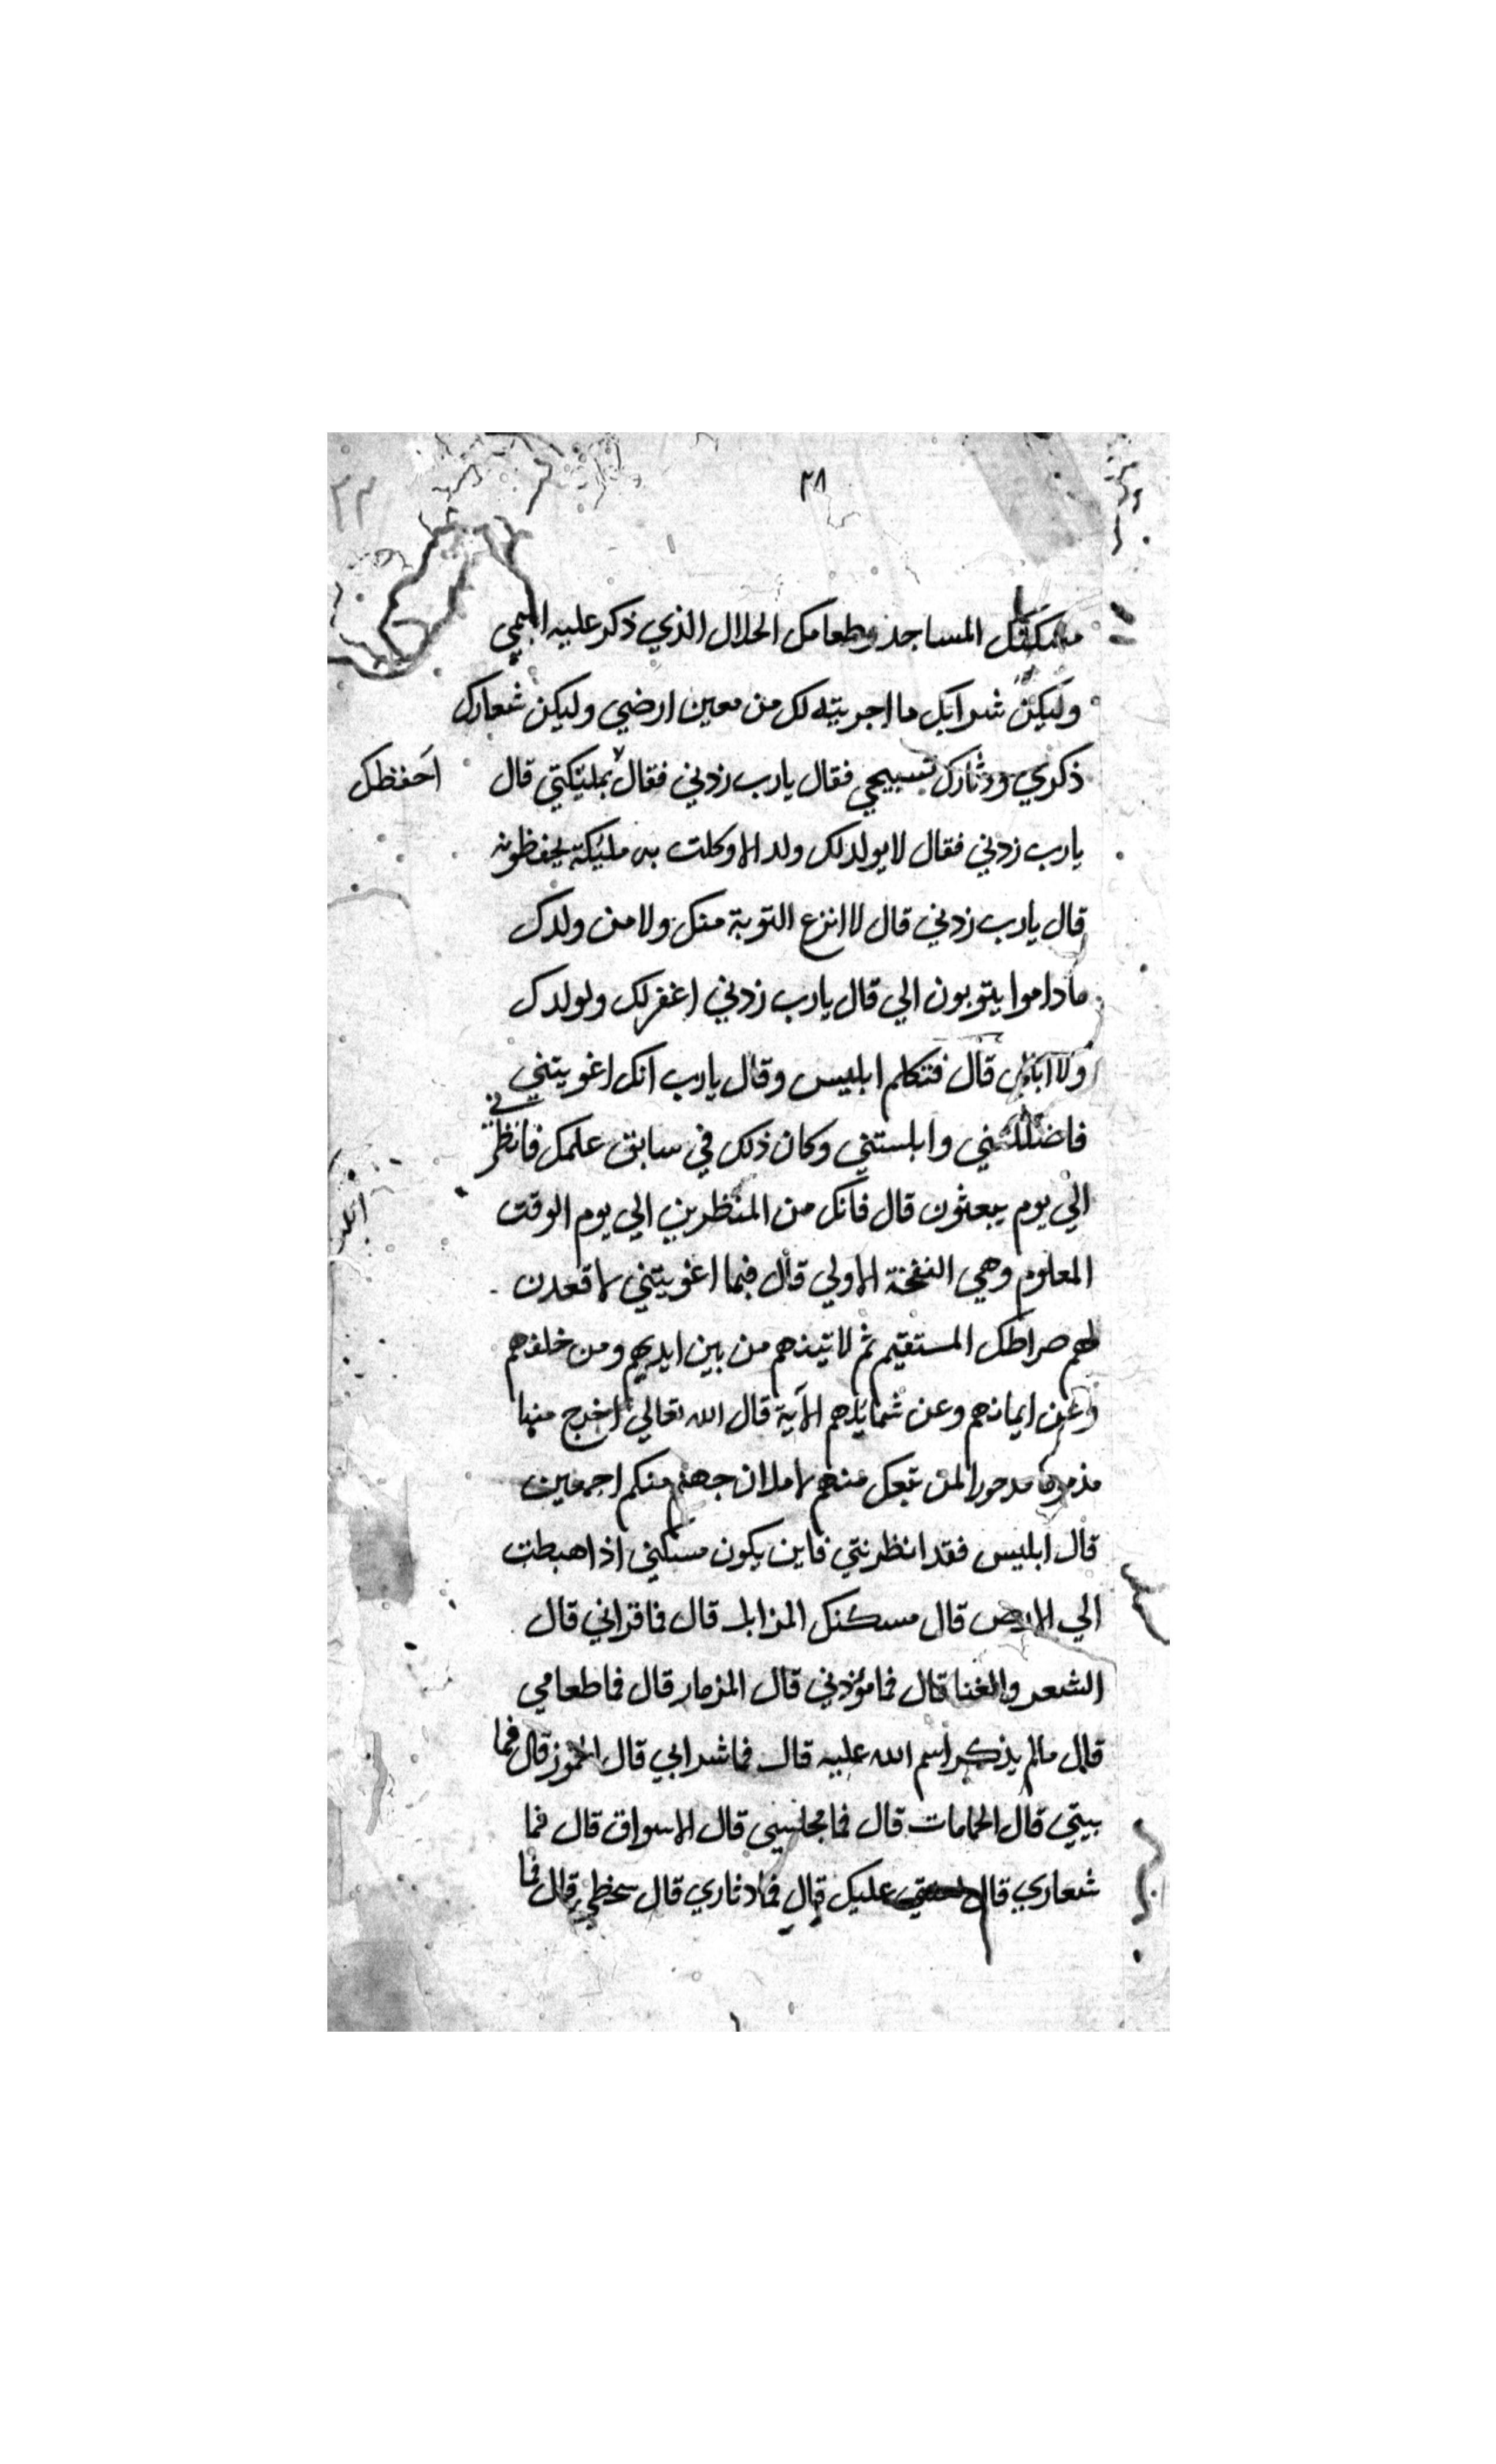 ٢٨
٢٣
مسكنك المساجد وطعامك الحلال الذي ذكر عليه اسمي
وليكن شرابك ما اجريته لك من معين ارضي وليكن شعارك
ذكري ودثارك تسبيحي فقال يارب زدني فقال بمليكتي قال
احفظك
يارب زدني فقال لا يولد لك ولد الا وكلت به مليكة يحفظونه
قال يارب زدني قال لا انزع التوبة منك ولا من ولدك
ماداموا يتوبون الي قال يارب زدني اغفر لك ولولدك
ولا ابالي قال فتكلم ابليس وقال يارب انك اغويتني
فاضللتني وابلستني وكان ذلك في سابق علمك فانظرني
الي يوم يبعثون قال فانك من المنظرين الي يوم الوقت
المعلوم وهي النفخة الاولي قال فبما اغويتني لاقعدن
لهم صراطك المستقيم ثم لاتينهم من بين ايديهم ومن خلفهم
وعن ايمانهم وعن شمايلهم الآية قال الله تعالي اخرج منها
مذموما مدحورا لمن تبعك منهم لاملان جهنم منكم اجمعين
قال ابليس فقد انظرتني فاين يكون مسكني اذا هبطت
الي الارض قال مسكنك المزابل قال فاقراني قال
الشعر والغنا قال فما مؤذني قال المزمار قال فما طعامي
قال مالم يذكر اسم الله عليه قال فما شرابي قال الخموز قال فما
بيتي قال الحمامات قال فما مجلسي قال الاسواق قال فما
شعاري قال لعنتي عليك قال فما دثاري قال سخطي قال فما